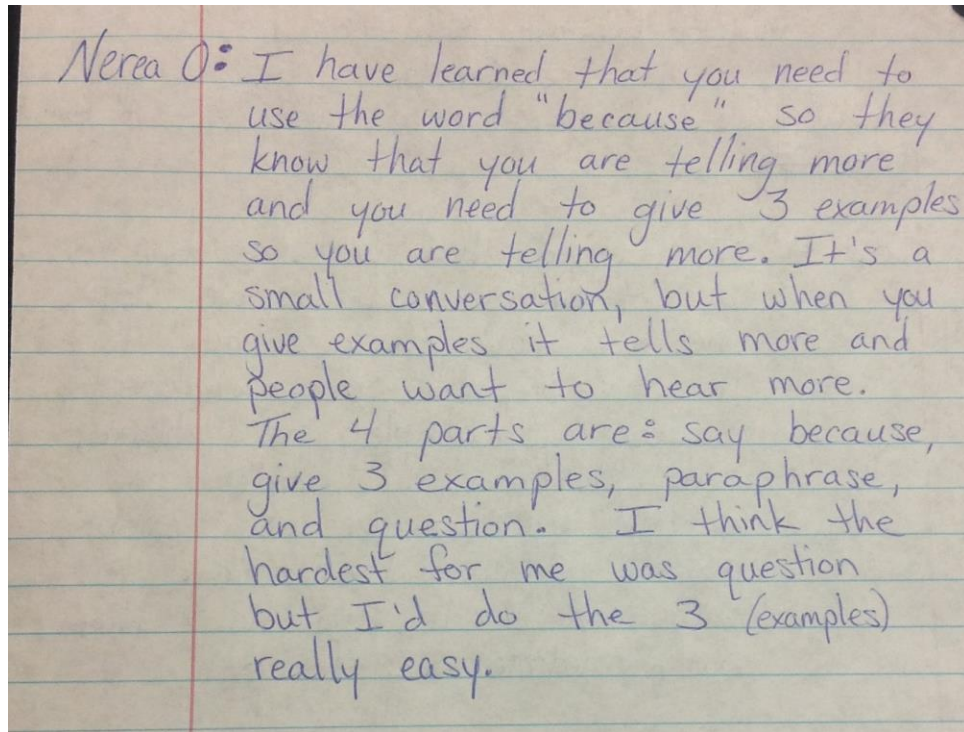 Nerea O: I have learned that you need to
use the word "because" so they
know that you are telling more
and you need to give 3 examples
so you are telling more. It's a
small conversation, but when you
give examples it tells more and
people want to hear more.
The 4 parts are: say because,
give 3 examples, paraphrase,
and question. I think the
hardest for me was question
but I'd do the 3 (examples)
really easy.